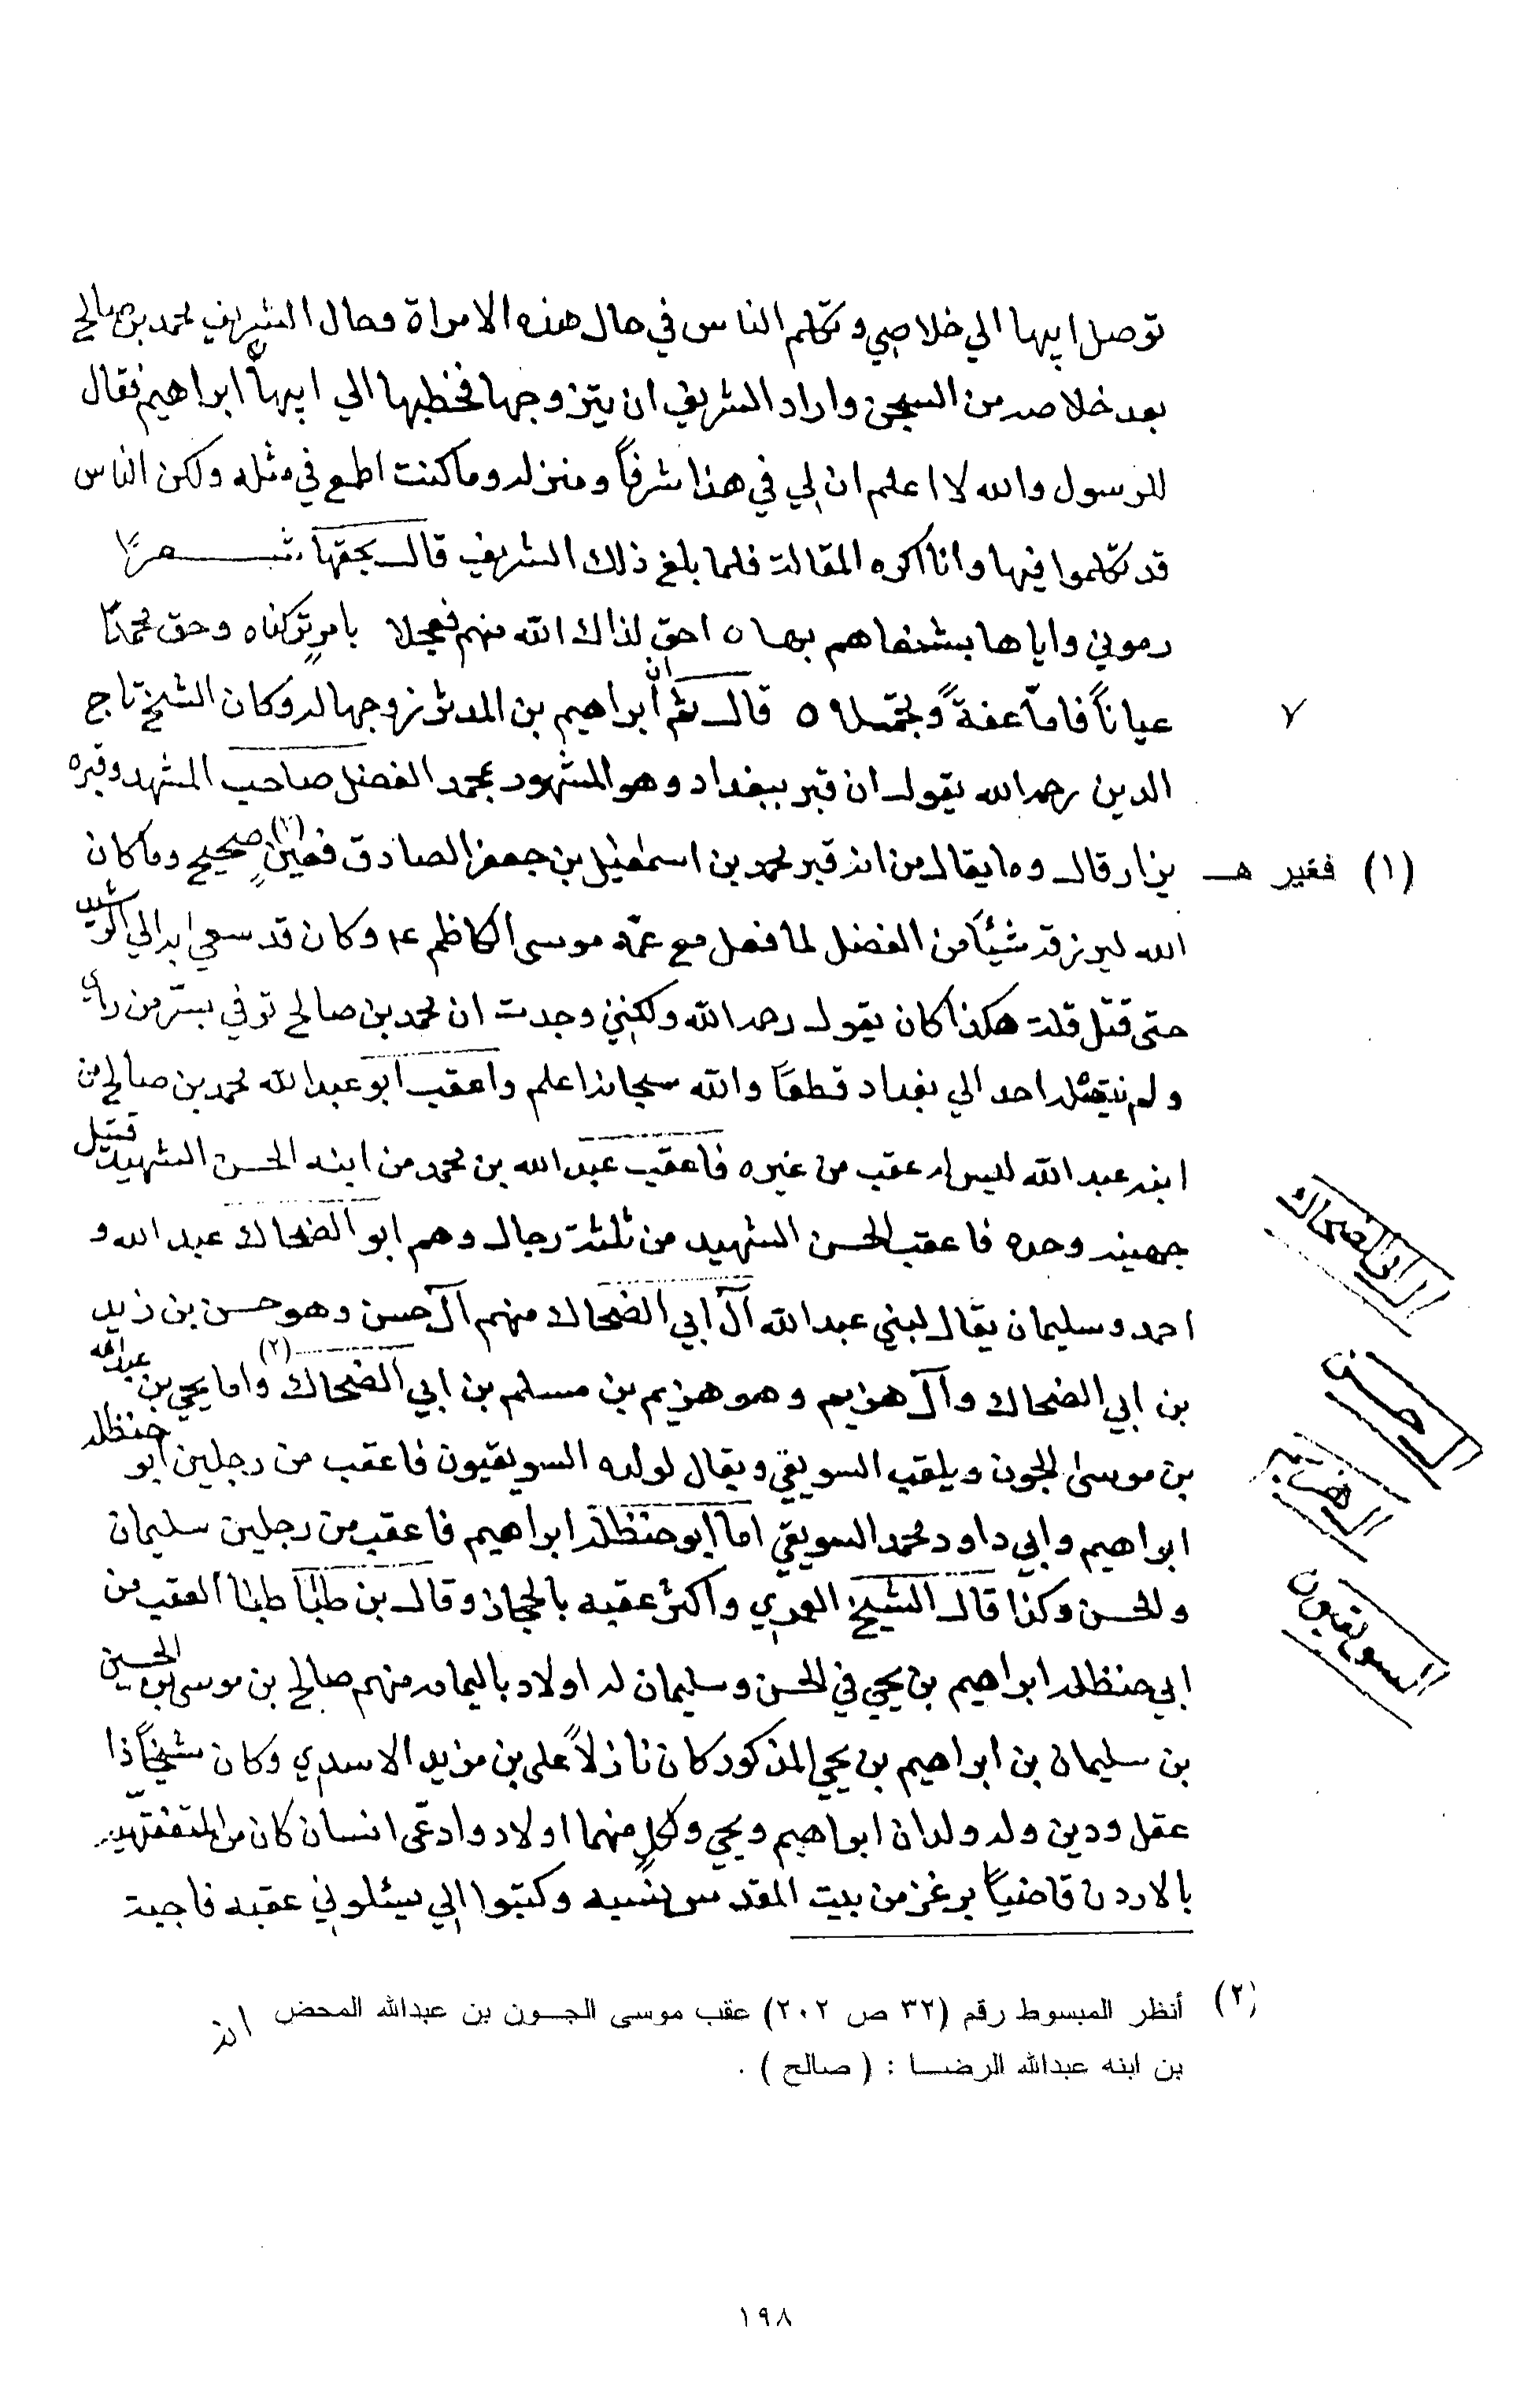 توصل ابيها الي خلاصي وتكلم الناس في حال هذه الامراة وحال الشريف محمد بن صالح
بعد خلاصه من السجن واراد الشريف ان يتزوجها فخطبها الي ابيها ابراهيم فقال
للرسول والله لا اعلم ان لي في هذا شرفاً ومنزله وما كنت اطمع في مثله ولكن الناس
قد تكلموا فيها وانا اكره المقالة فلما بلغ ذلك الشريف قال بحقها شعرًا
رموني واياها بشنعاهم بها ٥ احق لذاك الله منهم فعجلا بامرٍ تركناه وحق محمدٍ
عياناً فاما عفةً وتجملا ٥ قال ثم ان ابراهيم بن المدثر زوجها له وكان الشيخ تاج
الدين رحمه الله يقول ان قبر ببغداد وهو المشهور بمحمد الفضل صاحب المشهد وقبره
يزار قال وما يقال من انه قبر محمد بن اسمعيل بن جعفر الصادق فعين (١) صحيح وما كان
(١) فغير هـ
الله ليرزقه شيئاً من الفضل لما فعل مع عمه موسى الكاظم ع وكان قد سعي به الي الرشيد
حتى قتل قلت هكذا كان يقول رحمه الله ولكنني وجدت ان محمد بن صالح توفي بسر من راي
ولم ينقله احد الي بغداد قطعاً والله سبحانه اعلم واعقب ابو عبد الله محمد بن صالح من
ابنه عبد الله ليس له عقب من غيره فاعقب عبد الله بن محمد من ابنه الحسن الشهيد قتيل
جهينه وحده فاعقب الحسن الشهيد من ثلثة رجال وهم ابو الضحاك عبد الله و
احمد وسليمان يقال لبني عبد الله آل ابي الضحاك منهم آل حسن وهو حسن بن زيد
بن ابي الضحاك وآل هزيم وهو هزيم بن مسلم بن ابي الضحاك (٢) واما يحي بن عبد الله
بن موسى الجون ويلقب السويقي ويقال لولده السويقيون فاعقب من رجلين ابو حنظله
ابراهيم وابي داود محمد السويقي اما ابو حنظلة ابراهيم فاعقب من رجلين سليمان
والحسن وكذا قال الشيخ العمري واكثر عقبه بالحجاز وقال بن طباطبا العقب من
ابي حنظله ابراهيم بن يحي في الحسن وسليمان له اولاد باليمامه منهم صالح بن موسى بن الحسين
بن سليمان بن ابراهيم بن يحي المذكور كان نازلاً على بن مزيد الاسدي وكان شيخاً ذا
عقل ودين وله ولدان ابراهيم ويحي ولكل منهما اولاد وادعى انسان كان من المتفقهه
بالاردن قاضياً من بيت المقدس نسبه وكتبوا الي يسئلوني عقبه فاجبت
ال ابي الضحاك
ال حسن
ال هزيم
السويقيون
(٢) أنظر المبسوط رقم (٣٢ ص ٢٠٢) عقب موسى الجـون بن عبدالله المحض
انه
بن ابنه عبدالله الرضـا : ( صالح ) .
١٩٨